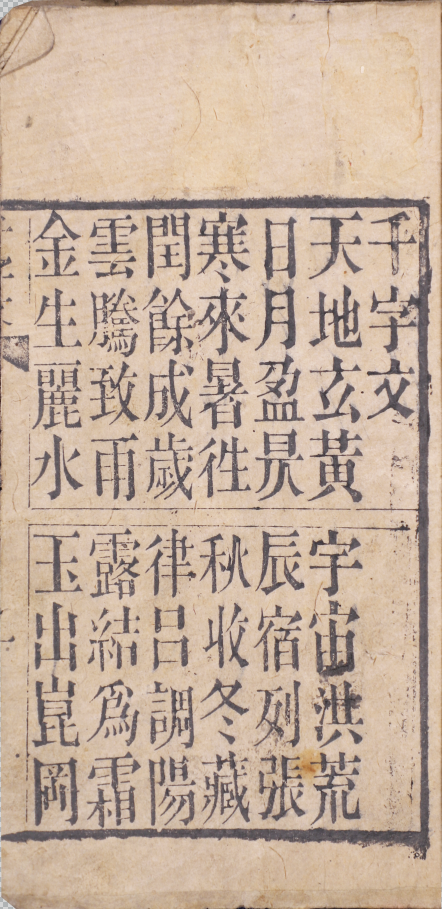 千字文
天地玄黃 宇宙洪荒
日月盈昃 辰宿列張
寒來暑徃 秋收冬藏
閏餘成歲 律呂調陽
雲騰致雨 露結爲霜
金生麗水 玉出崑岡